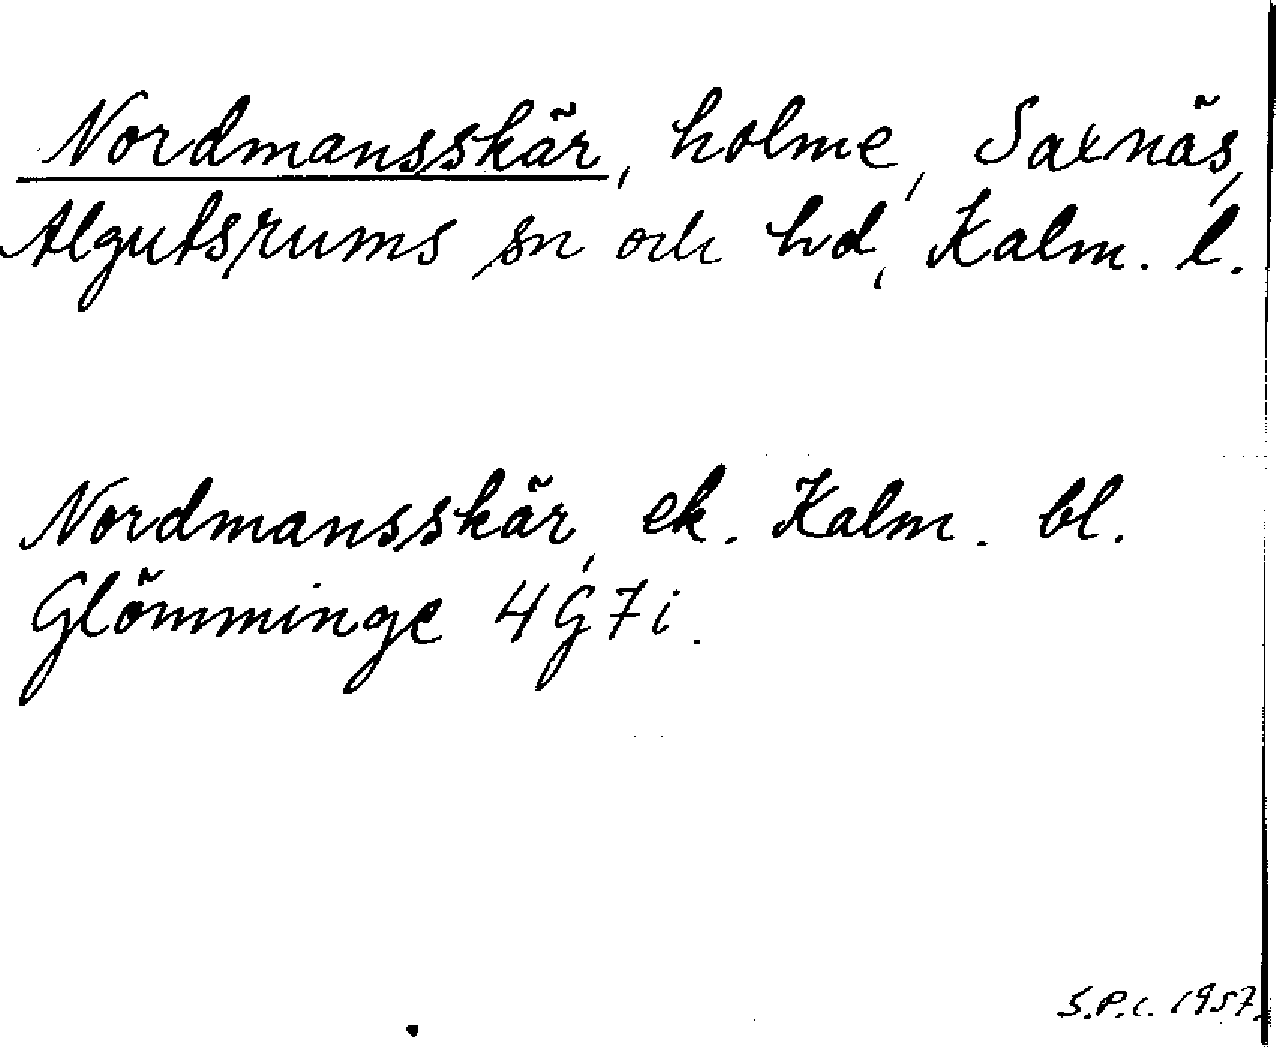 Nordmansskär, holme, Saxnäs,
Algutsrums sn och hd, Kalm. l.
Nordmansskär, ek. Kalm. bl.
Glömminge 4G7i.
S.P.c. 1957.